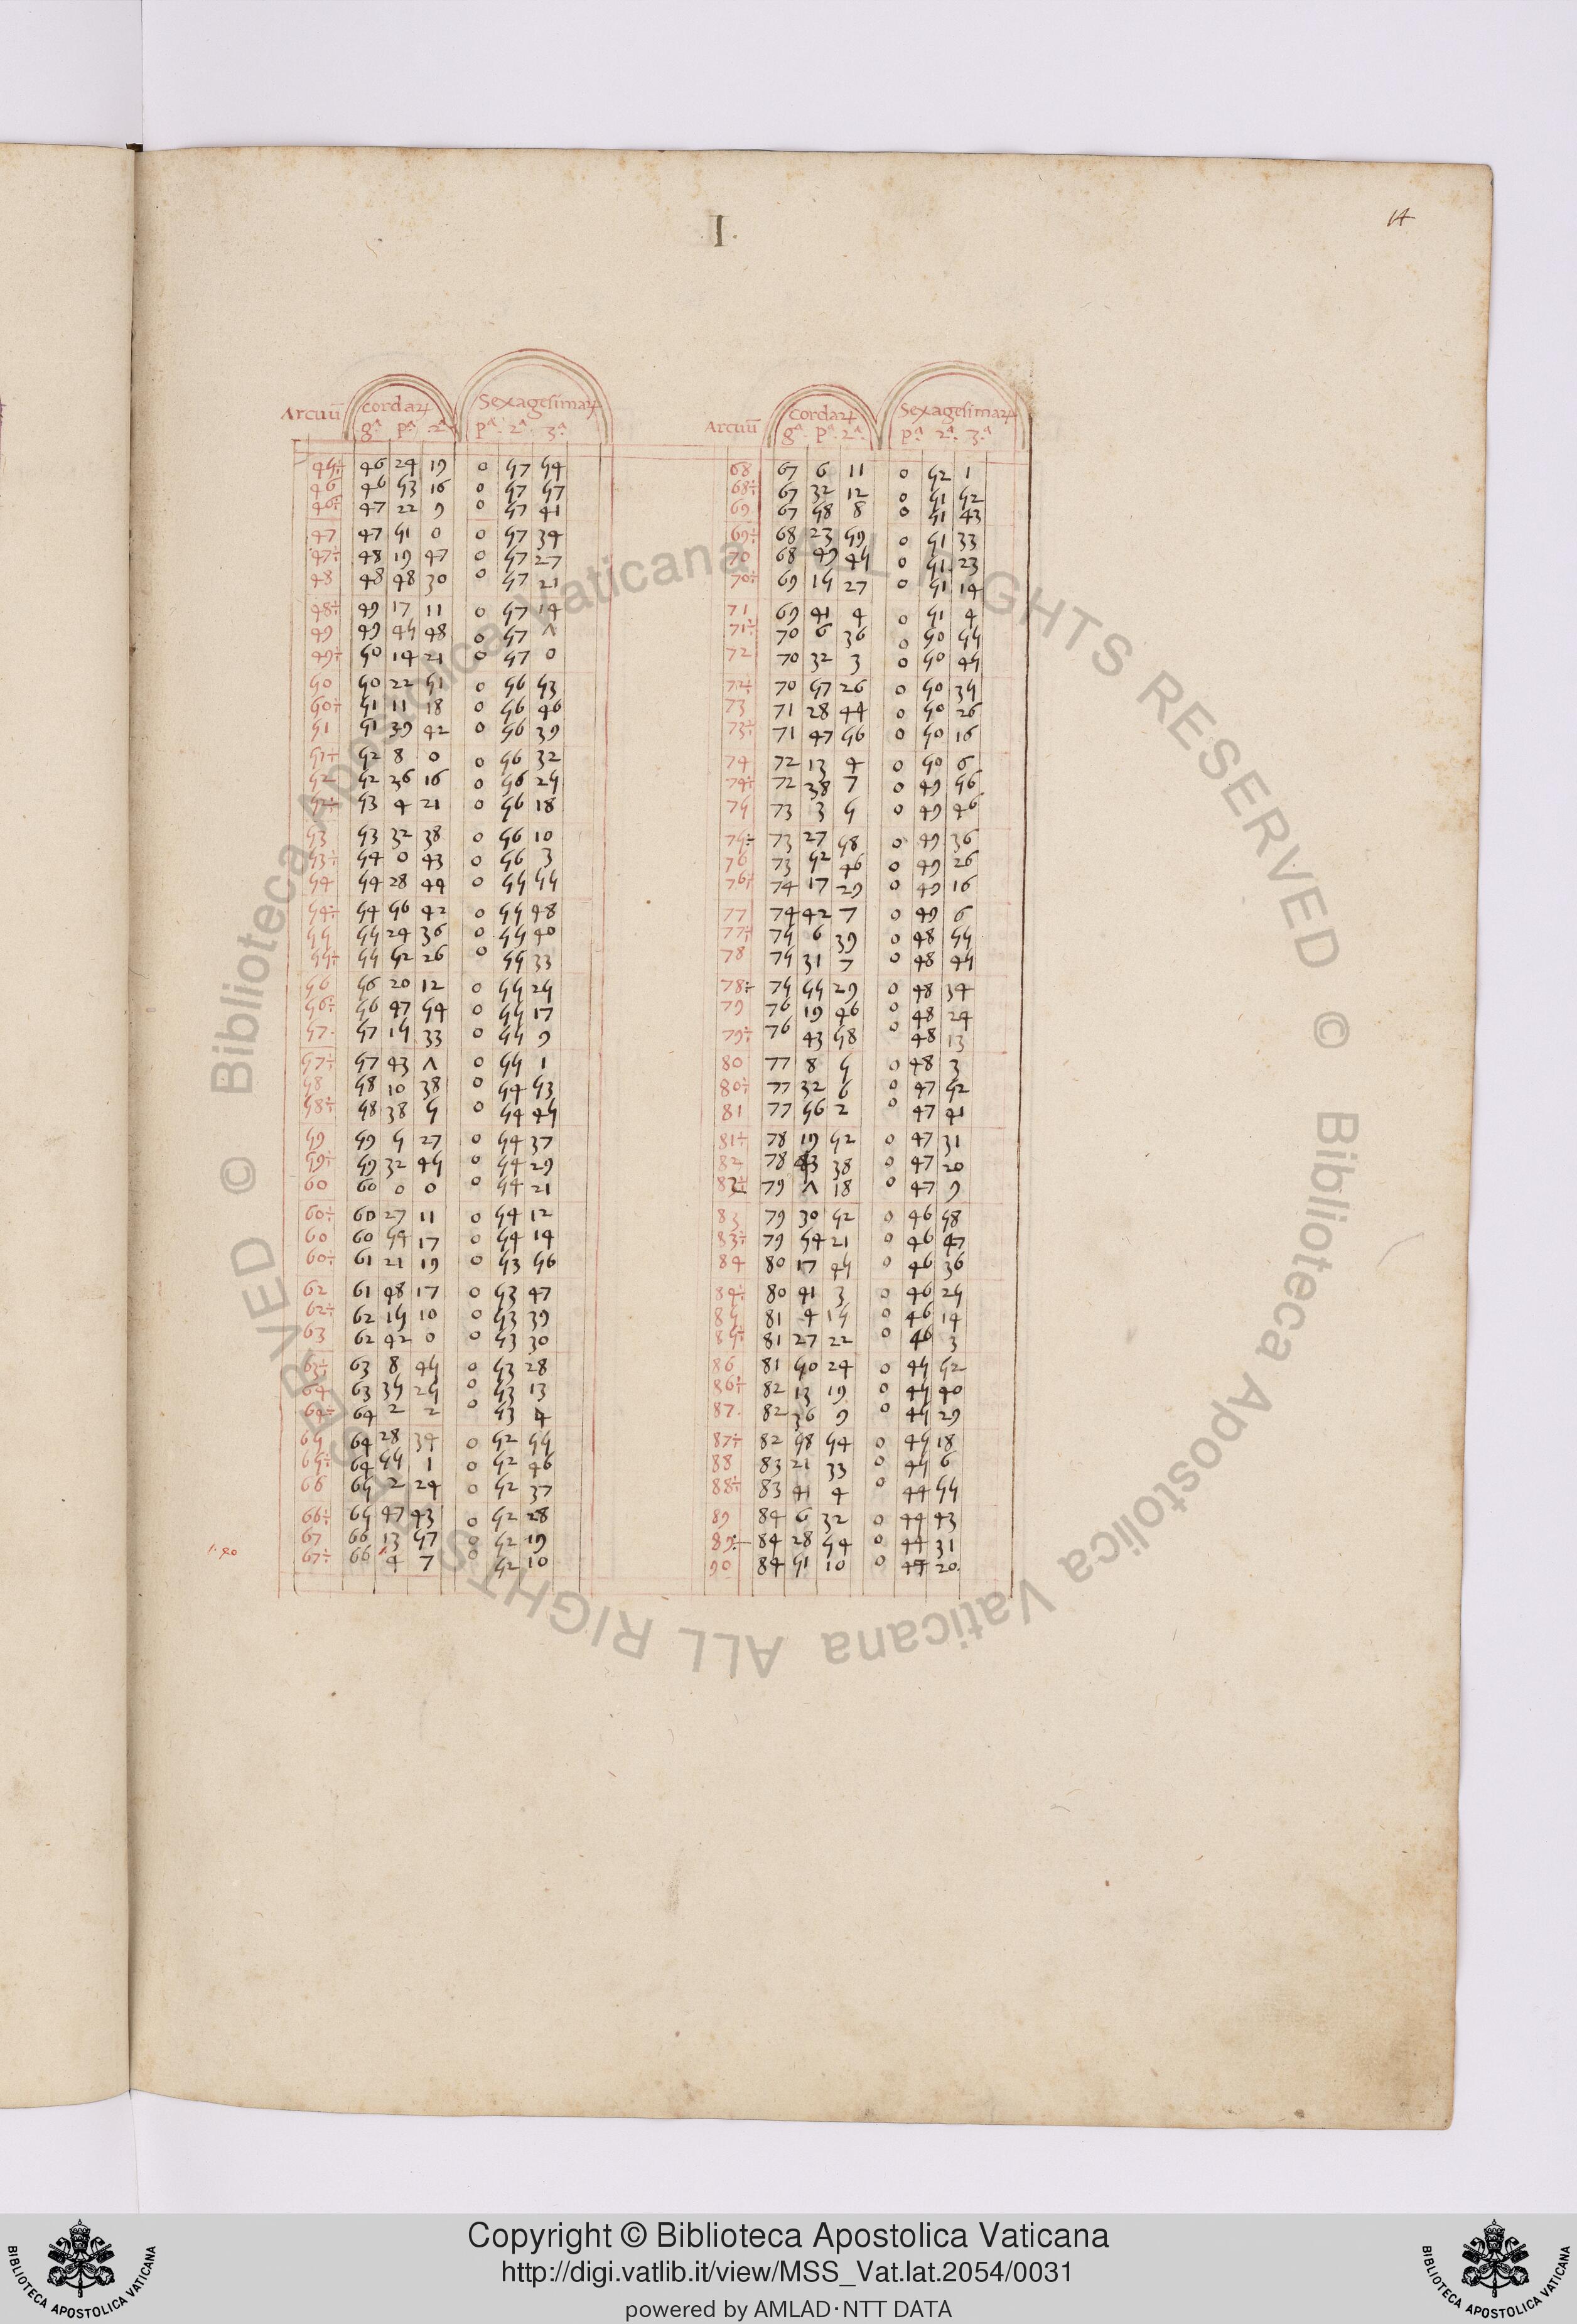 I.
14
Arcuū cordaꝝ Sexagesimaꝝ
gᵃ pᵃ 2ᵃ pᵃ 2ᵃ 3ᵃ
45÷ 46 24 19 0 57 54
46 46 53 16 0 57 57
46÷ 47 22 9 0 57 41
47 47 51 0 0 57 34
47÷ 48 19 47 0 57 27
48 48 48 30 0 57 21
48÷ 49 17 11 0 57 14
49 49 45 48 0 57 Λ
49÷ 50 14 21 0 57 0
50 50 22 51 0 56 53
50÷ 51 11 18 0 56 46
51 51 39 42 0 56 39
51÷ 52 8 0 0 56 32
52 52 36 16 0 56 25
52÷ 53 4 21 0 56 18
53 53 32 38 0 56 10
53÷ 54 0 43 0 56 3
54 54 28 44 0 55 55
54÷ 54 56 42 0 55 48
55 55 24 36 0 55 40
55÷ 55 52 26 0 55 33
56 56 20 12 0 55 25
56÷ 56 47 54 0 55 17
57. 57 15 33 0 55 9
57÷ 57 43 Λ 0 55 1
58 58 10 38 0 54 53
58÷ 58 38 5 0 54 45
59 59 5 27 0 54 37
59÷ 59 32 45 0 54 29
60 60 0 0 0 54 21
60÷ 60 27 11 0 54 12
60 60 54 17 0 54 14
60÷ 61 21 19 0 53 56
62 61 48 17 0 53 47
62÷ 62 15 10 0 53 39
63 62 42 0 0 53 30
63÷ 63 8 45 0 53 28
64 63 35 25 0 53 13
64÷ 64 2 2 0 53 4
65 64 28 34 0 52 55
65÷ 64 55 1 0 52 46
66 65 2 24 0 52 37
66÷ 65 47 43 0 52 28
67 66 13 57 0 52 19
67÷ 66 4 7 0 52 10
Arcuū cordaꝝ Sexagesimaꝝ
gᵃ pᵃ 2ᵃ pᵃ 2ᵃ 3ᵃ
68 67 6 11 0 52 1
68÷ 67 32 12 0 51 52
69 67 58 8 0 51 43
69÷ 68 23 59 0 51 33
70 68 49 45 0 51 23
70÷ 69 15 27 0 51 14
71 69 41 4 0 51 4
71÷ 70 6 36 0 50 55
72 70 32 3 0 50 45
72÷ 70 57 26 0 50 35
73 71 28 44 0 50 26
73÷ 71 47 56 0 50 16
74 72 13 4 0 50 6
74÷ 72 38 7 0 49 56
75 73 3 5 0 49 46
75÷ 73 27 58 0 49 36
76 73 52 46 0 49 26
76÷ 74 17 29 0 49 16
77 74 42 7 0 49 6
77÷ 75 6 39 0 48 55
78 75 31 7 0 48 45
78÷ 75 55 29 0 48 34
79 76 19 46 0 48 24
79÷ 76 43 58 0 48 13
80 77 8 5 0 48 3
80÷ 77 32 6 0 47 52
81 77 56 2 0 47 41
81÷ 78 19 52 0 47 31
82 78 43 38 0 47 20
82÷ 79 Λ 18 0 47 9
83 79 30 52 0 46 58
83÷ 79 54 21 0 46 47
84 80 17 45 0 46 36
84÷ 80 41 3 0 46 25
85 81 4 15 0 46 14
85÷ 81 27 22 0 46 3
86 81 50 24 0 45 52
86÷ 82 13 19 0 45 40
87. 82 36 9 0 45 29
87÷ 82 58 54 0 45 18
88 83 21 33 0 45 6
88÷ 83 41 4 0 44 55
89 84 6 32 0 44 43
89÷ 84 28 54 0 44 31
90 84 51 10 0 44 20.
Copyright © Biblioteca Apostolica Vaticana
http://digi.vatlib.it/view/MSS_Vat.lat.2054/0031
powered by AMLAD·NTT DATA
BIBLIOTECA APOSTOLICA VATICANA
BIBLIOTECA APOSTOLICA VATICANA
© Biblioteca Apostolica Vaticana ALL RIGHTS RESERVED © Biblioteca Apostolica Vaticana ALL RIGHTS RESERVED